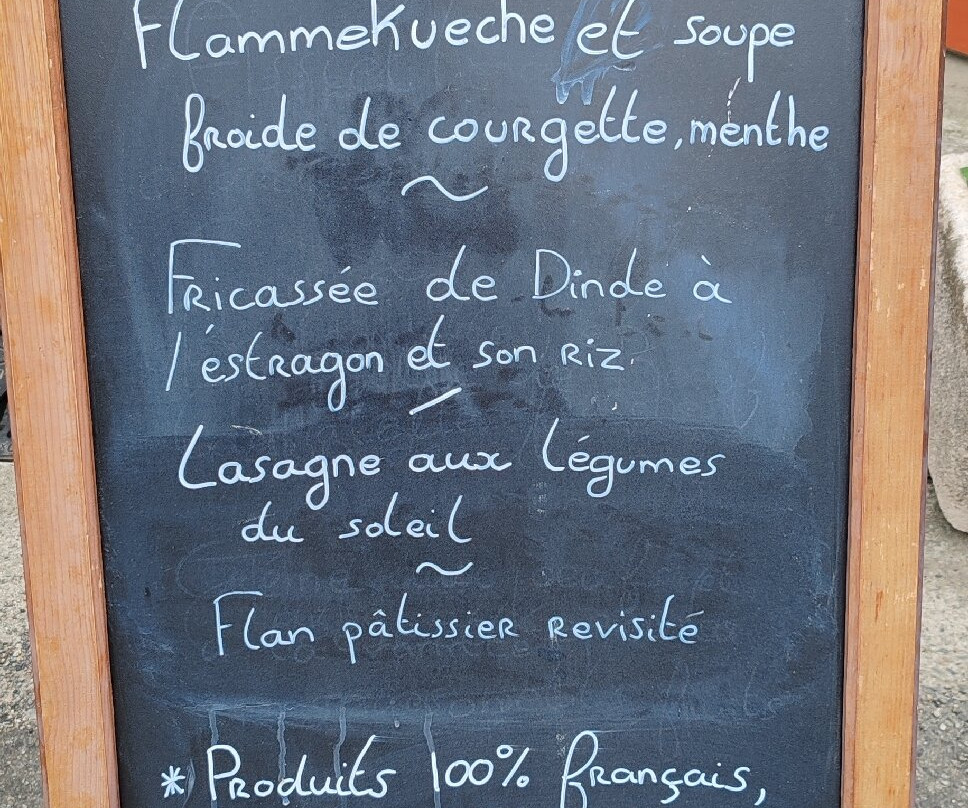 Flammekueche et soupe
froide de courgette, menthe
~
Fricassée de Dinde à
l'estragon et son riz.
/
Lasagne aux légumes
du soleil
~
Flan pâtissier revisité
* Produits 100% français,